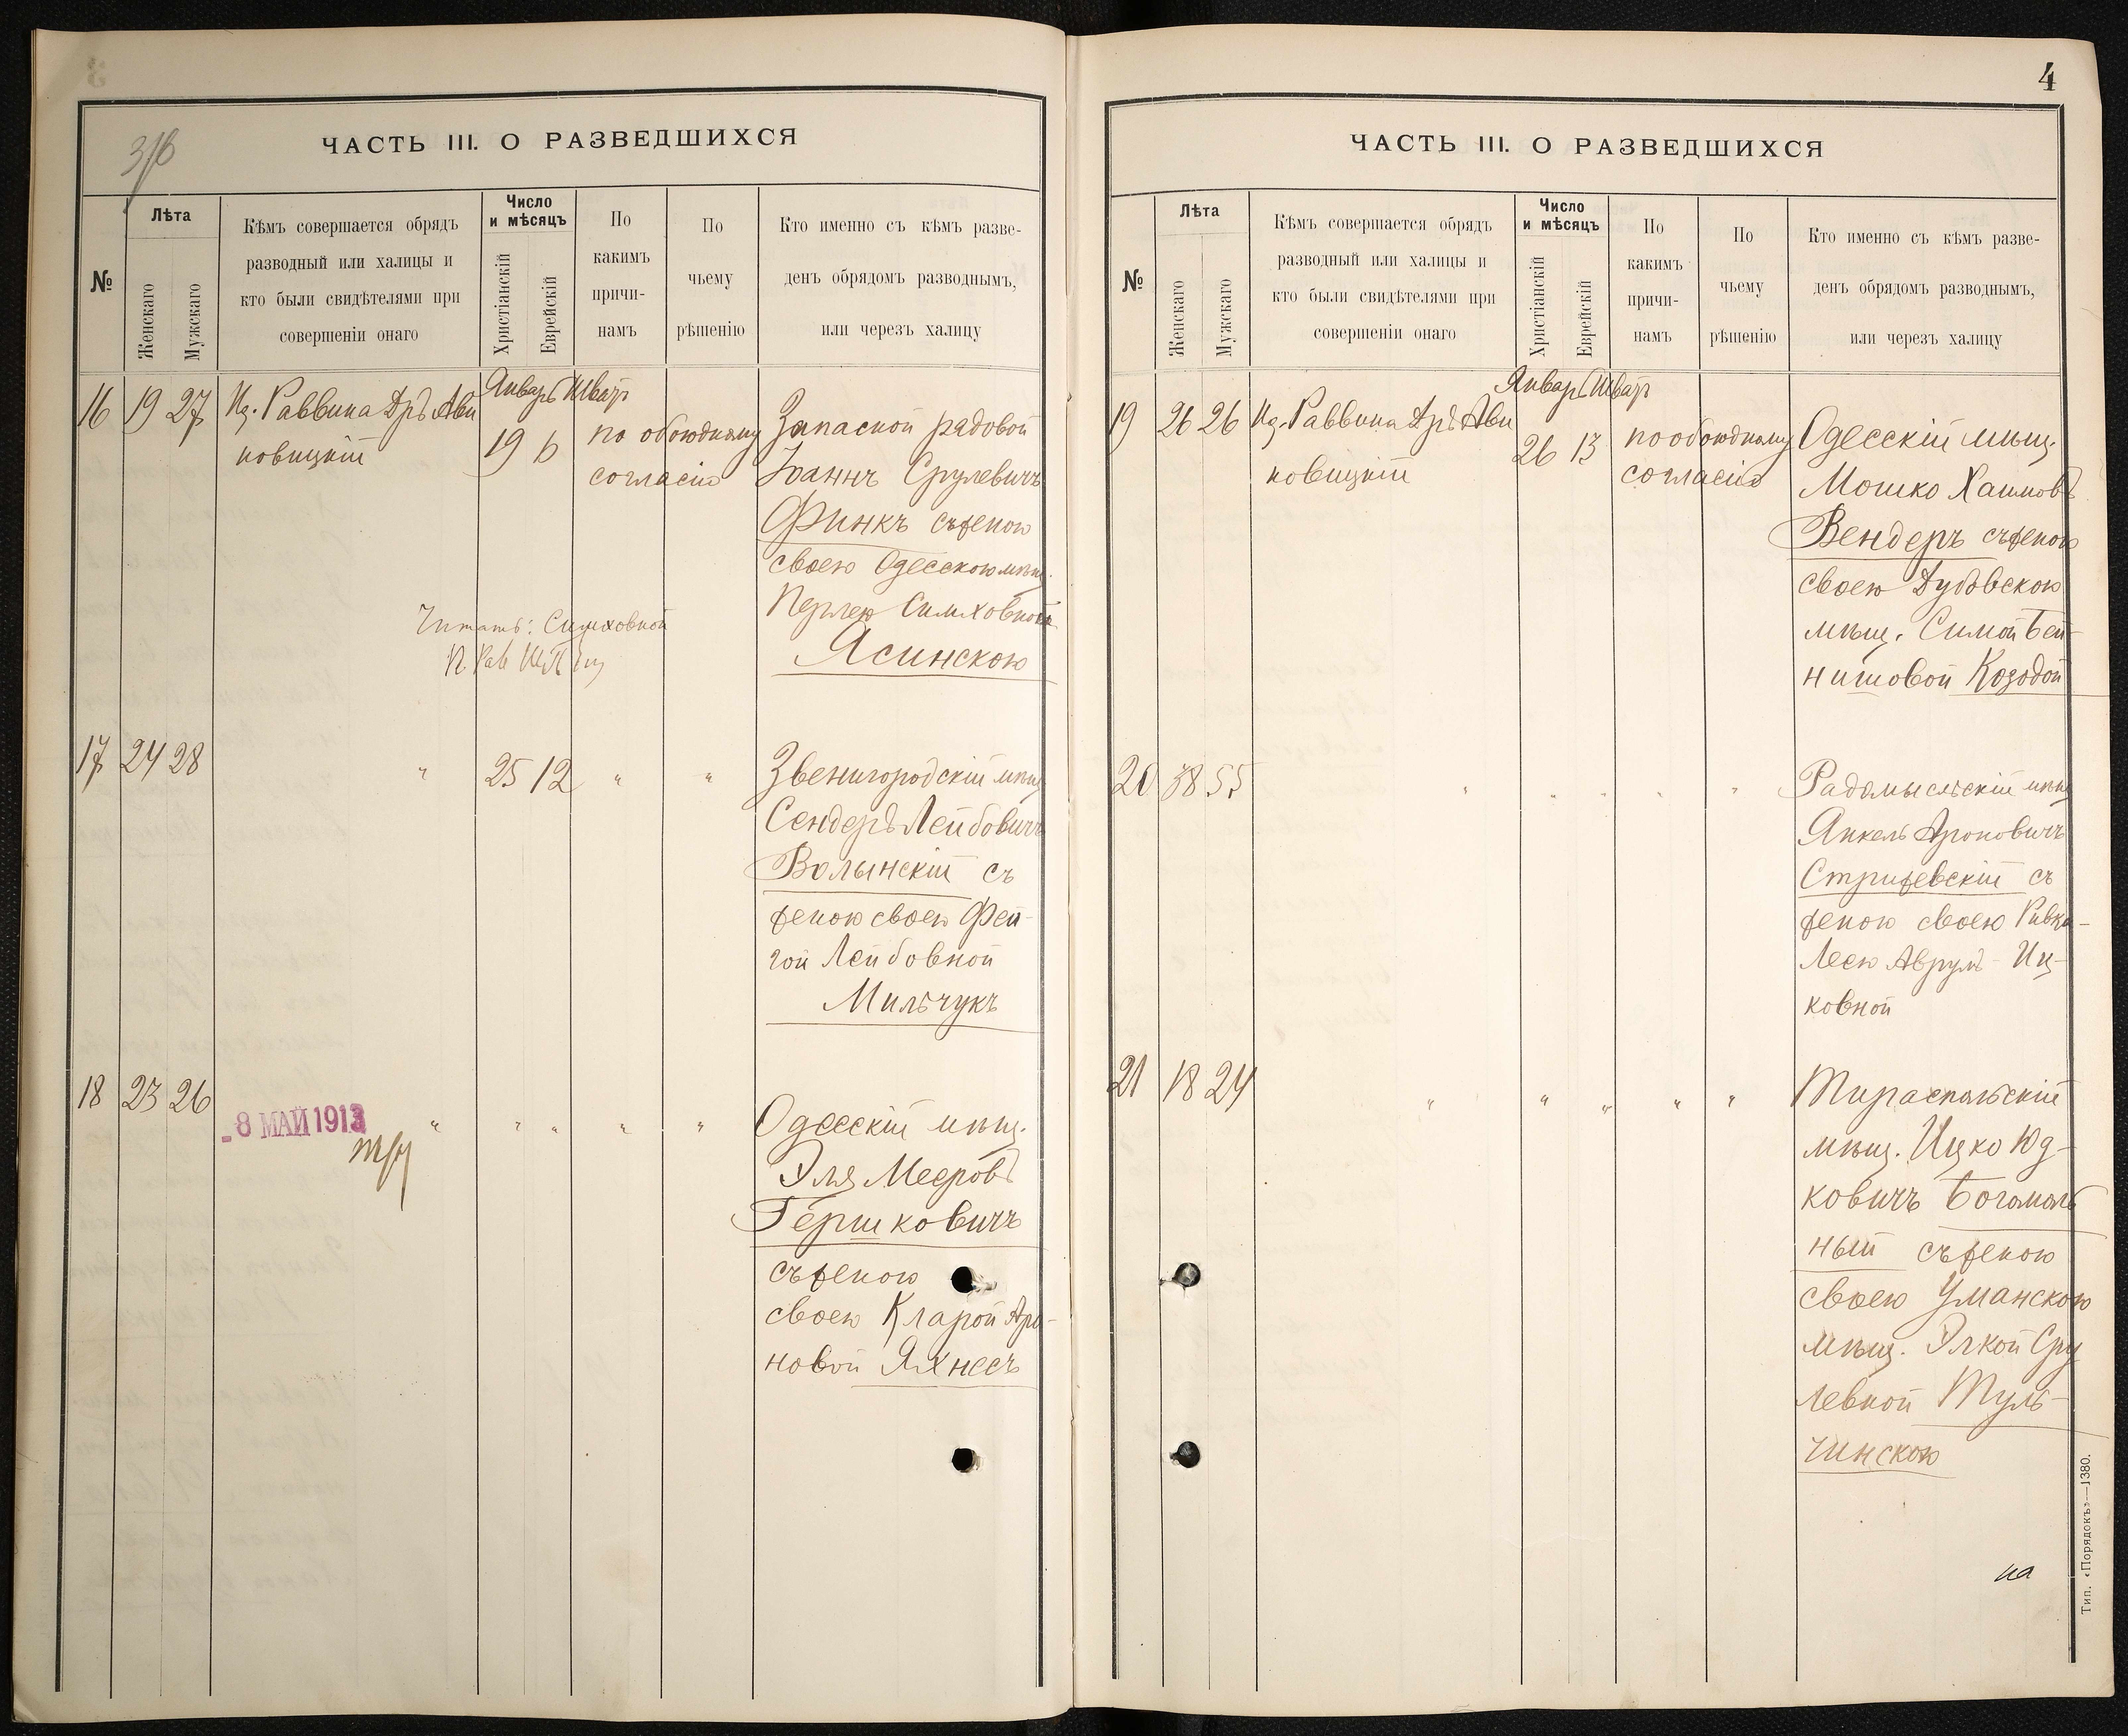 3/б
ЧАСТЬ III. О РАЗВЕДШИХСЯ
№
Лѣта
Женскаго
Мужскаго
Кѣмъ совершается обрядъ
разводный или халицы и
кто были свидѣтелями при
совершеніи онаго
Число
и мѣсяцъ
Христіанскій
Еврейскій
По
какимъ
причи-
намъ
По
чьему
рѣшенію
Кто именно съ кѣмъ разве-
денъ обрядомъ разводнымъ,
или черезъ халицу
Январь Шватъ
16 19 27 Из. Раввина Дръ Ави
новицкій
19 6
по обоюдному
согласію
Запасной радовой
Іоаннъ Срулевичъ
Финкъ съ женою
своею Одесскою мѣщ.
Перлею Симховною
Ясинскою
Читать: Симховной
17 24 28 " 25 12 " "
Звенигородскій мѣщ
Сендеръ Лейбовичъ
Волынскій съ
женою своею Фей-
гой Лейбовной
Мильчукъ
18 23 26 " " " " "
- 8 МАЙ 1913
Одесскій мѣщ.
Эля Мееровъ
Гершковичъ
съ женою
своею Кларой Аро-
новой Яхнесъ
4
ЧАСТЬ III. О РАЗВЕДШИХСЯ
№
Лѣта
Женскаго
Мужскаго
Кѣмъ совершается обрядъ
разводный или халицы и
кто были свидѣтелями при
совершеніи онаго
Число
и мѣсяцъ
Христіанскій
Еврейскій
По
какимъ
причи-
намъ
По
чьему
рѣшенію
Кто именно съ кѣмъ разве-
денъ обрядомъ разводнымъ,
или черезъ халицу
Январь Шватъ
19 26 26 Из. Раввина Дръ Ави
новицкій
26 13
по обоюдному
согласію
Одесскій мѣщ.
Мошко Хаимовъ
Вендеръ съ женою
своею Дубовскою
мѣщ. Симой Бей-
нишовой Козодой
20 38 55 " " " " "
Радомысльскій мѣщ
Янкель Ароновичъ
Стрижевскій съ
женою своею Ривка-
Леею Аврумъ-Иц-
ковной
21 18 24 " " " " "
Тираспольскій
мѣщ. Ицко Юд-
ковичъ Богомоль
ный съ женою
своею Уманскою
мѣщ. Элкой Сру
левной Туль-
чинскою
на
Тип. «Порядокъ»—1380.